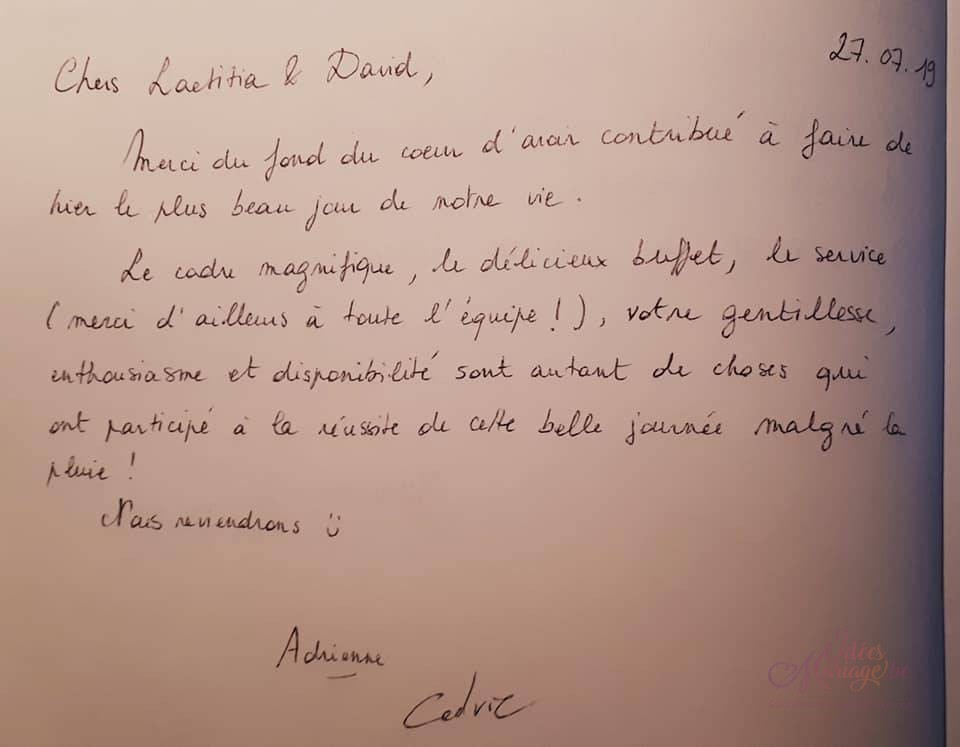 27.07.19
Chers Laetitia & David,
Merci du fond du coeur d'avoir contribué à faire de
hier le plus beau jour de notre vie.
Le cadre magnifique, le délicieux buffet, le service
(merci d'ailleurs à toute l'équipe !), votre gentillesse,
enthousiasme et disponibilité sont autant de choses qui
ont participé à la réussite de cette belle journée malgré la
pluie !
Nous reviendrons
Adrienne
Cedric